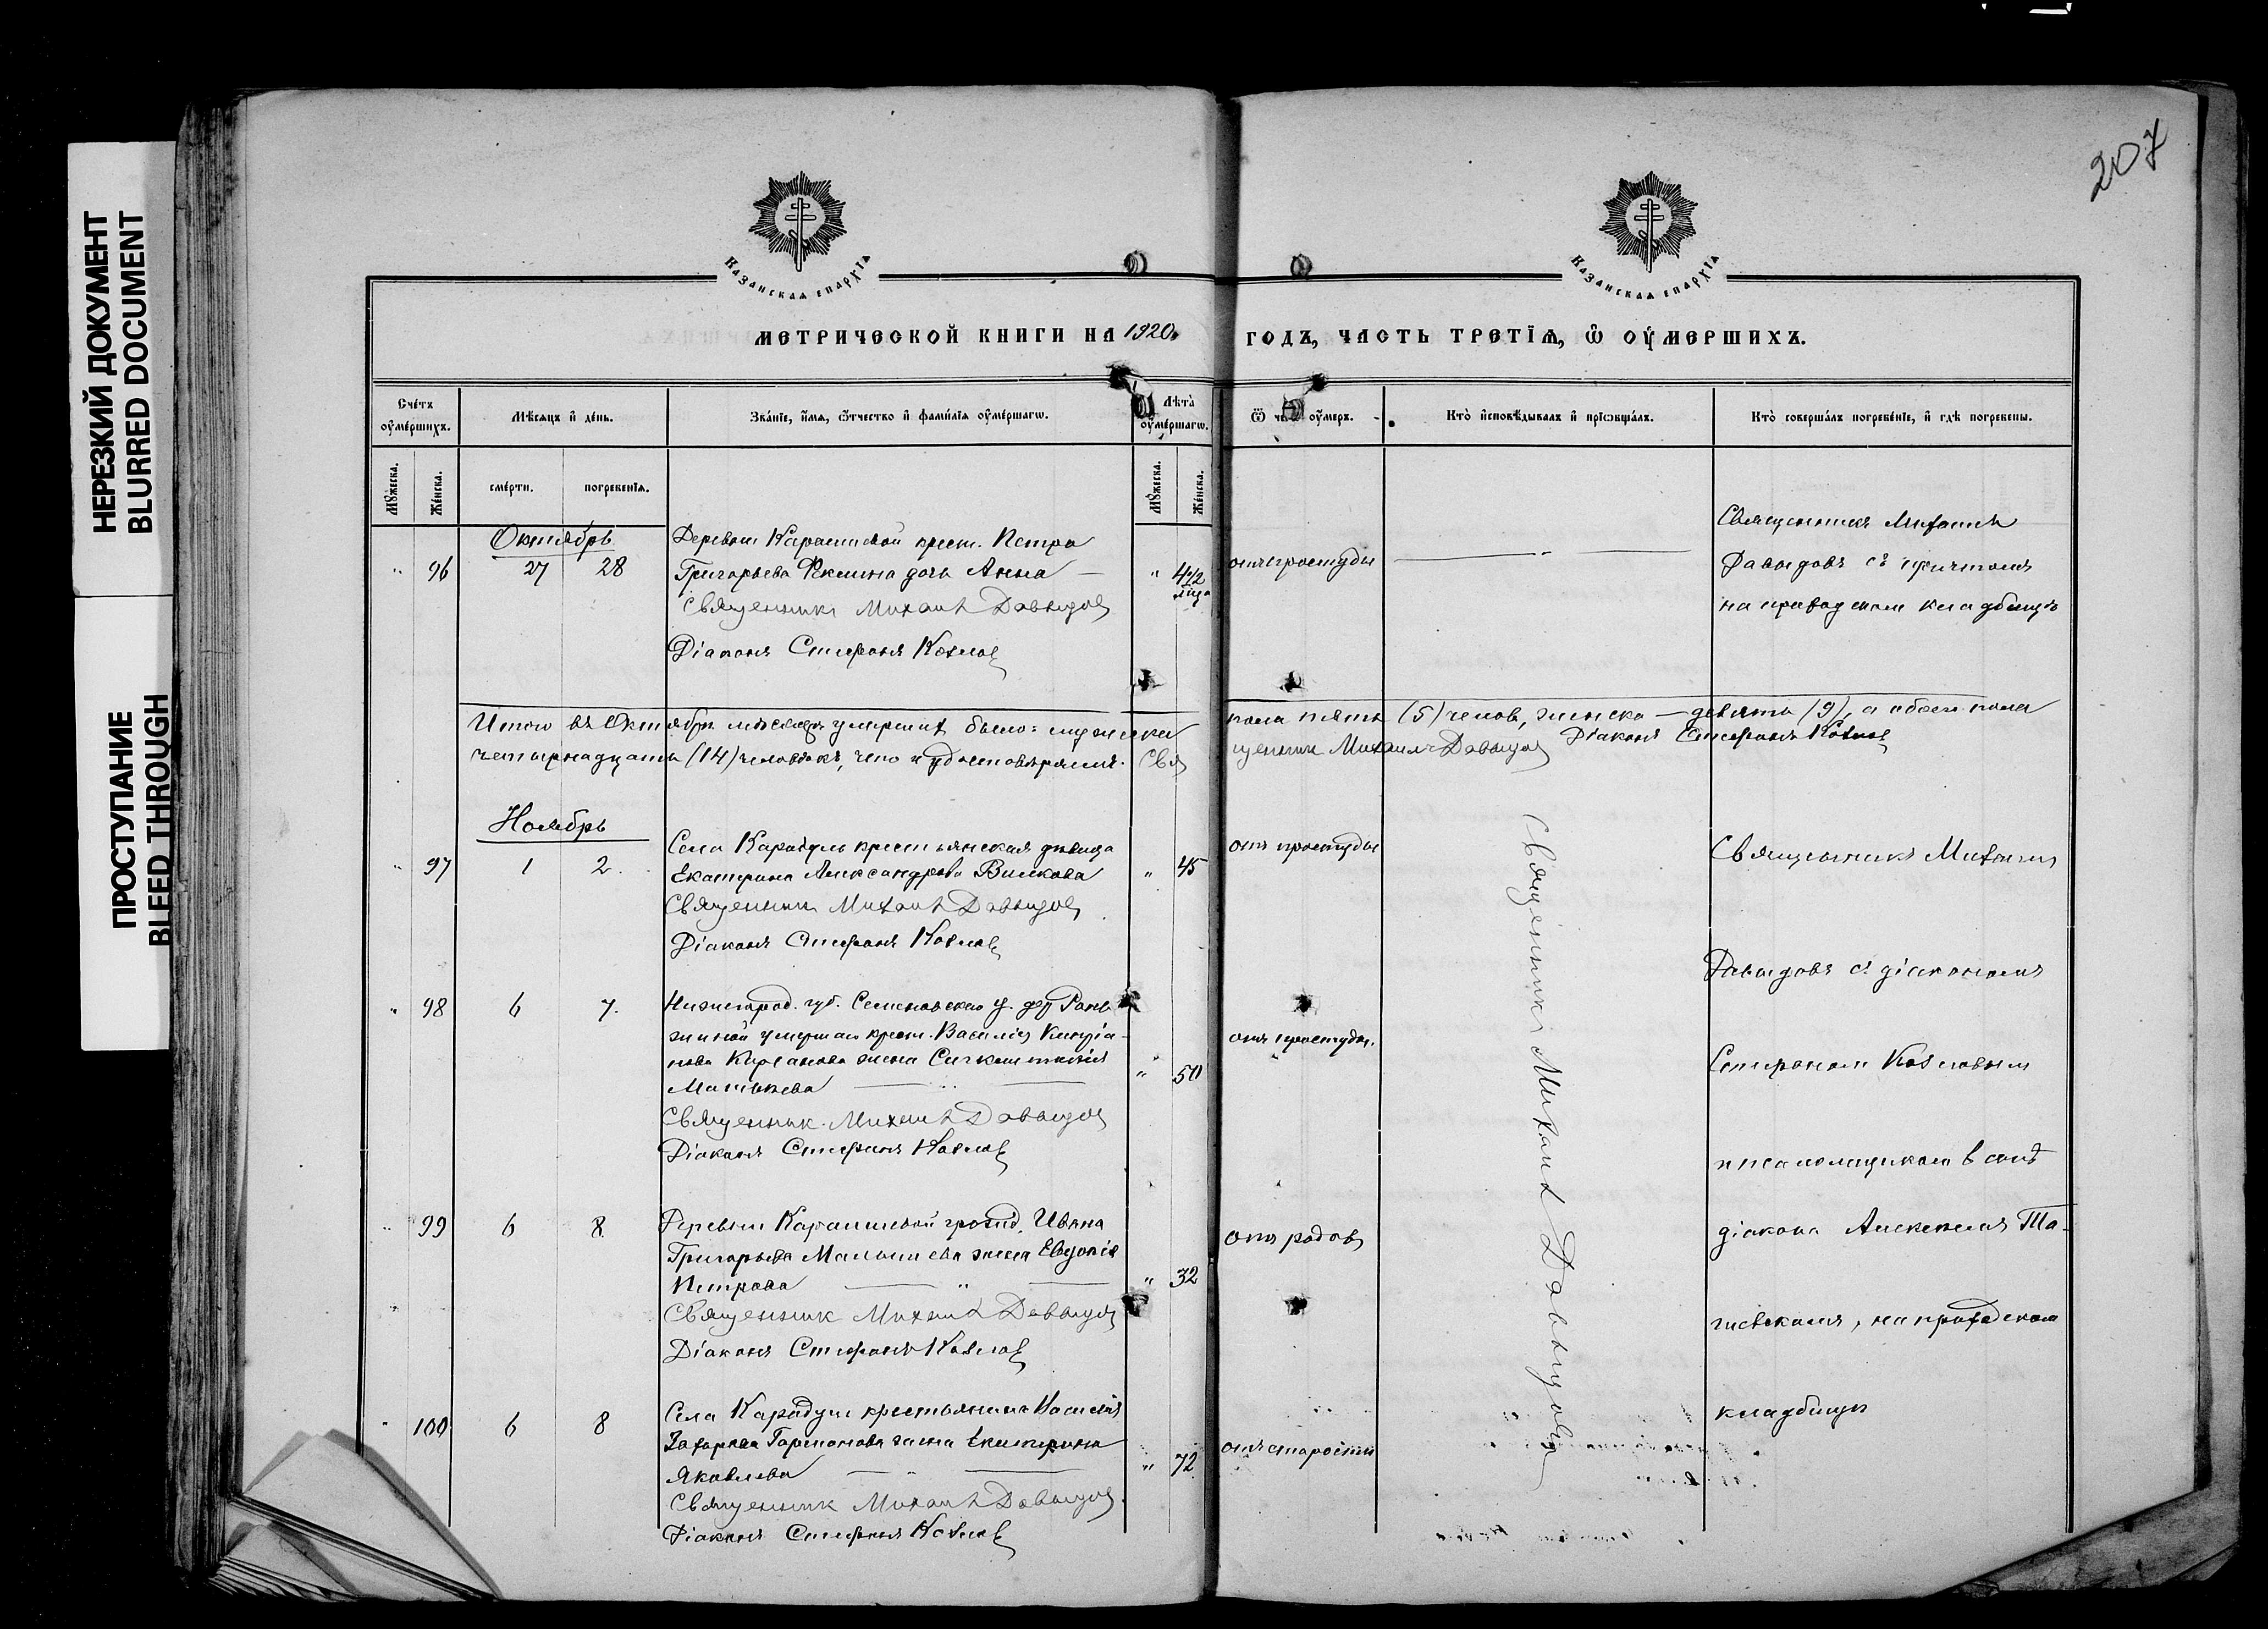 207
НЕРЕЗКИЙ ДОКУМЕНТ
BLURRED DOCUMENT
ПРОСТУПАНИЕ
BLEED THROUGH
Казанская епархїѧ
Казанская епархїѧ
МЕТРИЧЕСКОЙ КНИГИ НА 1920. ГОДЪ, ЧАСТЬ ТРЕТЇѦ, Ѿ ОУМЕРШИХЪ.
Счетъ оумершихъ.
Мѣсяцъ и день.
Званїе, имѧ, ѻтчество и фамилїѧ оумершагѡ.
Лѣта оумершагѡ.
Ѿ чегѡ оумеръ.
Кто исповѣдывалъ и прїѡбщалъ.
Кто совершалъ погребенїе, и гдѣ погребены.
Мужеска. Женска. смерти. погребенїѧ. Мужеска. Женска.
Октябрь
" 96 27 28
Деревни Карашевой крест. Петра
Григорьева дочь Анна —
" 4 1/2
отъ простуды
Священникъ Михаилъ Давыдовъ
Діаконъ Стефанъ Козловъ
Священникъ Михаилъ
Давыдовъ съ причтомъ
на приходском кладбищѣ
Итого въ Октябрѣ мѣсяцѣ умерших было: мужска пола пять (5) челов, женска — девять (9), а обоего пола
четырнадцать (14) человѣкъ, что и удостовѣряемъ. Священник Михаилъ Давыдовъ Діаконъ Стефанъ Козловъ
Ноябрь
" 97 1 2.
Села Карадули крестьянская дѣвица
Екатерина Александрова Вилкова
" 45
отъ простуды
Священникъ Михаилъ Давыдовъ
Діаконъ Стефанъ Козловъ
" 98 6 7.
Нижегород. губ. Семеновскаго у. дер
умершая крест. Василія
жена
Матвѣева
" 50
отъ простуды.
Священник Михаилъ Давыдовъ
Діаконъ Стефанъ Козловъ
" 99 6 8.
Деревни Карашевой гражд. Ивана
Григорьева Малышева жена Евдокія
Петрова
" 32
отъ родовъ
Священник Михаилъ Давыдовъ
Діаконъ Стефанъ Козловъ
" 100 6 8
Села Карадули крестьянина Василія
Захарова жена Екатерина
Яковлева
" 72
отъ старости
Священник Михаилъ Давыдовъ
Діаконъ Стефанъ Козловъ
Священникъ Михаилъ Давыдовъ
Священникъ Михаилъ
Давыдовъ съ діакономъ
Стефаном Козловым
псаломщиком в санѣ
діакона Алексѣемъ
на приходском
кладбищѣ